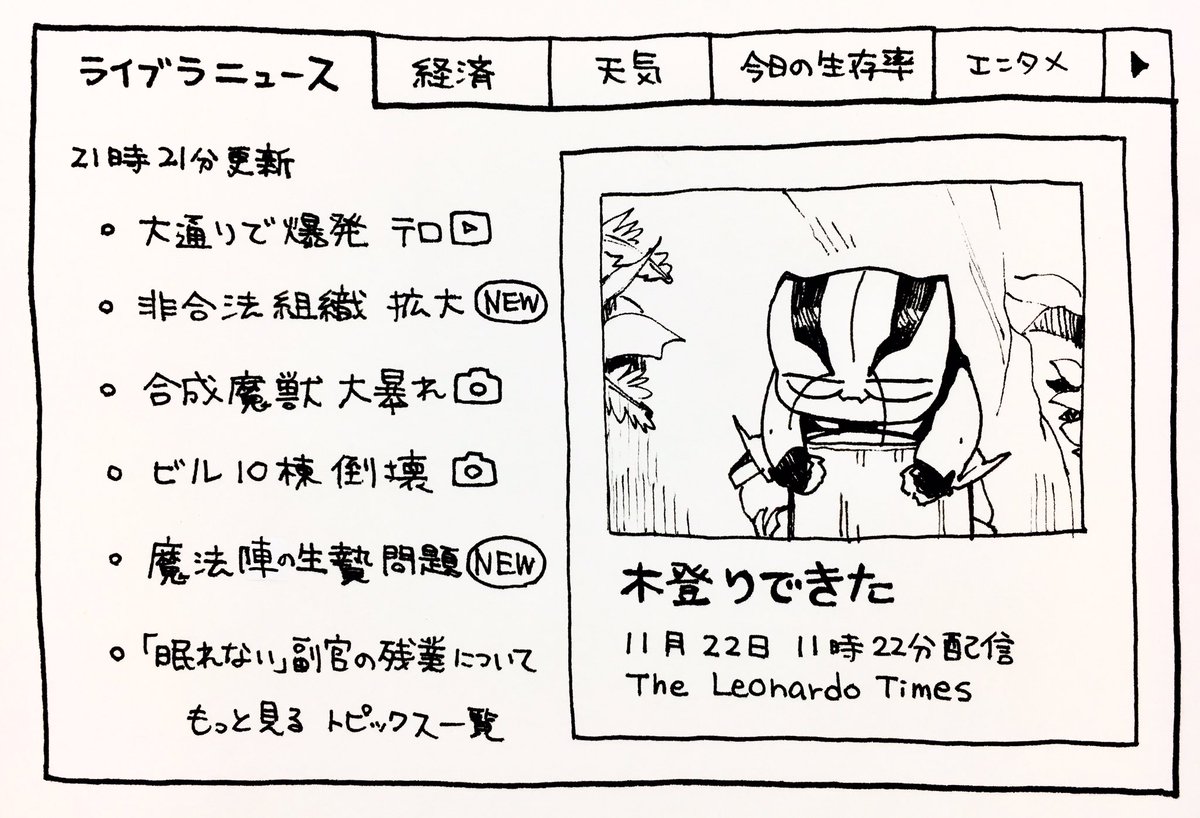 ライブラニュース 経済 天気 今日の生存率 エンタメ
21時21分更新
大通りで爆発 テロ
非合法組織 拡大 NEW
合成魔獣 大暴れ
ビル10棟倒壊
魔法陣の生贄問題 NEW
「眠れない」副官の残業について
もっと見る トピックス一覧
木登りできた
11月22日 11時22分配信
The Leonardo Times